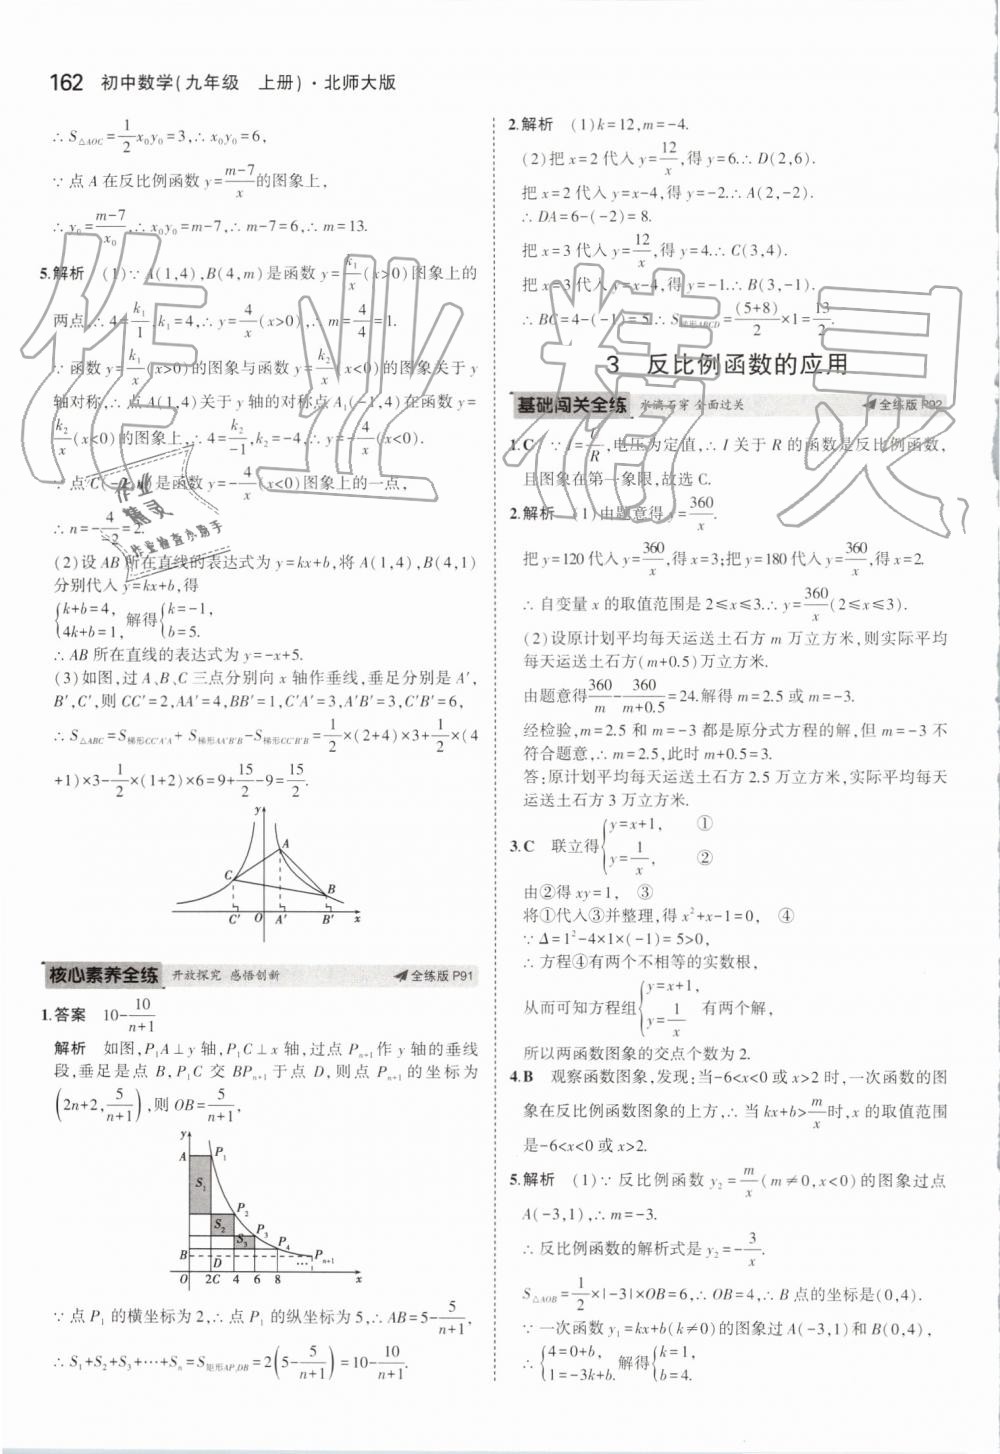 162 初中数学(九年级 上册)·北师大版
∴ S△AOC=1/2x₀y₀=3,∴ x₀y₀=6,
∵ 点 A 在反比例函数 y=(m-7)/x的图象上,
∴ y₀=(m-7)/x₀,∴ x₀y₀=m-7,∴ m-7=6,∴ m=13.
5.解析 (1)∵ A(1,4),B(4,m)是函数 y=k₁/x(x>0)图象上的
两点,∴ 4=k₁/1,k₁=4,∴ y=4/x(x>0),∴ m=4/4=1.
∵ 函数 y=k₁/x(x>0)的图象与函数 y=k₂/x(x<0)的图象关于 y
轴对称,∴ 点 A(1,4)关于 y 轴的对称点 A₁(-1,4)在函数 y=
k₂/x(x<0)的图象上,∴ 4=k₂/-1,k₂=-4,∴ y=-4/x(x<0).
∵ 点 C(-2,n)是函数 y=-4/x(x<0)图象上的一点,
∴ n=-4/-2=2.
(2)设 AB 所在直线的表达式为 y=kx+b,将 A(1,4),B(4,1)
分别代入 y=kx+b,得
{k+b=4, 4k+b=1, 解得{k=-1, b=5.
∴ AB 所在直线的表达式为 y=-x+5.
(3)如图,过 A、B、C 三点分别向 x 轴作垂线,垂足分别是 A′,
B′,C′,则 CC′=2,AA′=4,BB′=1,C′A′=3,A′B′=3,C′B′=6,
∴ S△ABC=S梯形CC′A′A+ S梯形AA′B′B-S梯形CC′B′B=1/2×(2+4)×3+1/2×(4
+1)×3-1/2×(1+2)×6=9+15/2-9=15/2.
y
A
C
B
C′ O A′ B′ x
核心素养全练 开放探究 感悟创新 全练版 P91
1.答案 10-10/(n+1)
解析 如图,P₁A⊥y 轴,P₁C⊥x 轴,过点 Pₙ₊₁作 y 轴的垂线
段,垂足是点 B,P₁C 交 BPₙ₊₁于点 D,则点 Pₙ₊₁的坐标为
(2n+2,5/(n+1)),则 OB=5/(n+1),
y
A P₁
S₁
P₂
S₂
P₃
S₃ P₄
B Pₙ₊₁
D …
O 2C 4 6 8 x
∵ 点 P₁ 的横坐标为 2,∴ 点 P₁ 的纵坐标为 5,∴ AB=5-5/(n+1),
∴ S₁+S₂+S₃+…+Sₙ=S矩形AP₁DB=2(5-5/(n+1))=10-10/(n+1).
2.解析 (1)k=12,m=-4.
(2)把 x=2 代入 y=12/x,得 y=6.∴ D(2,6).
把 x=2 代入 y=x-4,得 y=-2.∴ A(2,-2).
∴ DA=6-(-2)=8.
把 x=3 代入 y=12/x,得 y=4.∴ C(3,4).
把 x=3 代入 y=x-4,得 y=-1.∴ B(3,-1).
∴ BC=4-(-1)=5.∴ S梯形ABCD=(5+8)/2×1=13/2.
3 反比例函数的应用
基础闯关全练 水滴石穿 全面过关 全练版 P92
1.C ∵ I=U/R,电压为定值,∴ I 关于 R 的函数是反比例函数,
且图象在第一象限,故选 C.
2.解析 (1)由题意得 y=360/x.
把 y=120 代入 y=360/x,得 x=3;把 y=180 代入 y=360/x,得 x=2.
∴ 自变量 x 的取值范围是 2≤x≤3.∴ y=360/x(2≤x≤3).
(2)设原计划平均每天运送土石方 m 万立方米,则实际平均
每天运送土石方(m+0.5)万立方米.
由题意得360/m-360/(m+0.5)=24.解得 m=2.5 或 m=-3.
经检验,m=2.5 和 m=-3 都是原分式方程的解,但 m=-3 不
符合题意,∴ m=2.5,此时 m+0.5=3.
答:原计划平均每天运送土石方 2.5 万立方米,实际平均每天
运送土石方 3 万立方米.
3.C 联立得{y=x+1, ① y=1/x, ②
由②得 xy=1, ③
将①代入③并整理,得 x²+x-1=0, ④
∵ Δ=1²-4×1×(-1)=5>0,
∴ 方程④有两个不相等的实数根,
从而可知方程组{y=x+1, y=1/x 有两个解,
所以两函数图象的交点个数为 2.
4.B 观察函数图象,发现:当-6<x<0 或 x>2 时,一次函数的图
象在反比例函数图象的上方,∴ 当 kx+b>m/x时,x 的取值范围
是-6<x<0 或 x>2.
5.解析 (1)∵ 反比例函数 y₂=m/x(m≠0,x<0)的图象过点
A(-3,1),∴ m=-3.
∴ 反比例函数的解析式是 y₂=-3/x.
S△AOB=1/2×|-3|×OB=6,∴ OB=4,∴ B 点的坐标是(0,4).
∵ 一次函数 y₁=kx+b(k≠0)的图象过 A(-3,1)和 B(0,4),
∴ {4=0+b, 1=-3k+b. 解得{k=1, b=4.
作业精灵
作业
精灵
作业检查小助手